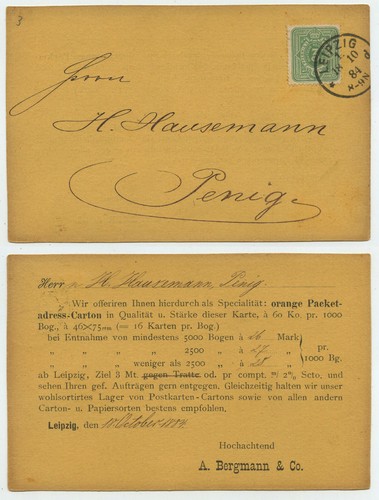 3
LEIPZIG
18 10
84
8-9N
Herrn
H. Hausemann
Penig
Herrn H. Hausemann, Penig.
Wir offeriren Ihnen hierdurch als Specialität: orange Packet-
adress-Carton in Qualität u. Stärke dieser Karte, à 60 Ko. pr. 1000
Bog., à 46×75 cm (= 16 Karten pr. Bog.)
bei Entnahme von mindestens 5000 Bogen à 26 Mark
„ „ „ „ 2500 „ à 27 „ pr.
„ „ „ weniger als 2500 „ à 28 „ 1000 Bg.
ab Leipzig, Ziel 3 Mt. gegen Tratte od. pr compt. m/ 2% Scto. und
sehen Ihren gef. Aufträgen gern entgegen. Gleichzeitig halten wir unser
wohlsortirtes Lager von Postkarten-Cartons sowie von allen andern
Carton- u. Papiersorten bestens empfohlen.
Leipzig, den 18 October 1884
Hochachtend
A. Bergmann & Co.